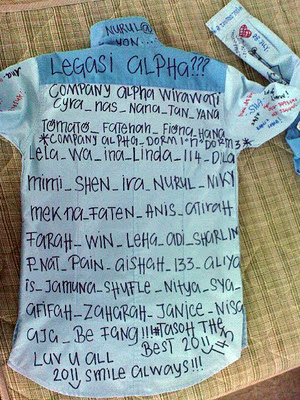 NURUL@
YON...
LEGASI ALPHA???
COMPANY ALPHA WIRAWATI
CYRA_nas_Nana_TAN_YANA
TOMATO_FATEHAH_FIONA_HANA
*COMPANY ALPHA_DORM 1-n*DORM 3*
Lela_Wa_ina_Linda_114_DILA
mimi_SHEN_ira_NURUL_NIKY
mek na_FATEN_ANIS_atirah
FARAH_WIN_LEHA_ADI_SHARLIN
P.NAT_PAIN_AISHAH_133_ALIYA
is_Jamuna_SHUFLE_Nitya_SYA_
AFIFAH_ZAHARAH_JANICE_NISA
AJA_BE FANG!!!#TASOH THE
BEST 2011
LUV U ALL
2011 SMILE ALWAYS!!!